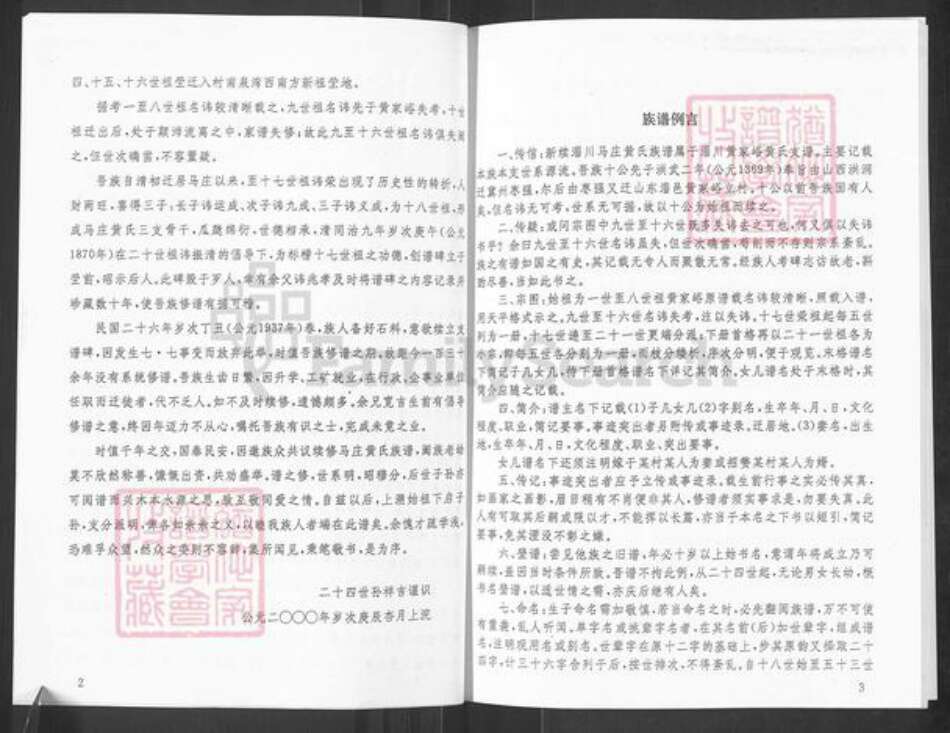 四、十五、十六世祖茔迁入村南泉湾西南方新祖茔地。
据考一至八世祖名讳较清晰载之，九世祖名讳先于黄家峪失考，十七世
祖迁出后，处于颠沛流离之中，家谱失修；故此九至十六世祖名讳俱失阙
之。但世次确凿，不容置疑。
吾族自清初迁居马庄以来，至十七世祖讳荣出现了历史性的转折，人
财两旺，喜得三子；长子讳运成、次子讳九成、三子讳文成，为十八世祖，形
成马庄黄氏三支骨干，瓜瓞绵衍，世德相承，清同治九年岁次庚午（公元
1870年）在二十世祖讳振清的倡导下，为标榜十七世祖之功德，创谱碑立于
茔前，昭示后人。此碑毁于歹人，幸有余父讳兆孝及时将谱碑之内容记录并
珍藏数十年，使吾族修谱有据可稽。
民国二十六年岁次丁丑（公元1937年）春，族人备好石料，意欲续立支
谱碑，因发生七·七事变而放弃此举，时值吾族修谱之期，故距今一百三十
余年没有系统修谱。吾族生齿日繁，因升学、工矿就业，在行政、企事业单位
任职而迁徙者，代不乏人。如不及时续修，遗憾颇多。余兄宽吉生前有倡导
修谱之意，终因年迈力不从心，嘱托吾族有识之士，完成未竟之业。
时值千年之交，国泰民安，因邀族众共议续修马庄黄氏族谱，阖族老幼
莫不欣然称善，慷慨出资，共劝盛举。谱之修，世系明，昭穆分，后世子孙亦
可阅谱而兴木本水源之思，敬至敬同爱之情。自兹以后，上溯始祖下启子
孙，支分派明，俾各知亲亲之义，以睦我族人者端在此谱矣。余愧才疏学浅，
恐难孚众望，然众之委则不容辞，集所闻见，秉笔敬书，是为序。
二十四世孙祥吉谨识
公元二〇〇〇年岁次庚辰杏月上浣
2
族谱例言
一、传信：新续淄川马庄黄氏族谱属于淄川黄家峪黄氏支谱。主要记载
本族本支世系源流。吾族十公先于洪武二年（公元1369年）奉旨由山西洪洞
迁冀州枣强，尔后由枣强又迁山东淄邑黄家峪立村。十公以前吾族固有人
矣，但名讳无可考，世系无可据，故以十公为始祖而续之。
二、传疑：或问宗图中九世至十六世既多失讳去之可也，何又俱以失讳
书乎？余曰九世至十六世名讳虽失，但世次确凿，苟削而不存则宗系紊乱。
族之有谱如国之有史，其记载无专人而聚散无常。经族人考碑志访故老，斟
酌尽善，当如此书之。
三、宗图：始祖为一世至八世祖黄家峪原谱载名讳较清晰，照载入谱，
用天平格式示之。九世至十六世名讳失考，注以失讳。十七世荣祖起每五世
列为一册，十七世递至二十一世更端分派。下册首格再以二十一世祖各为
小宗，即每五世各分别为一册，则枝分缕析，序次分明，便于观览。末格谱名
下简记子几女几，待下册首格谱名下详记其简介。女儿谱名处于末格时，其
简介应随之记载。
四、简介：谱主名下记载(1)子几女几(2)字别名，生卒年、月、日，文化
程度、职业，简记要事，事迹突出者另附传或事迹录。迁居地。(3)妻名，出生
地，生卒年、月、日，文化程度、职业、突出要事。
女儿谱名下还须注明嫁于某村某人为妻或招赘某村某人为婿。
五、传记：事迹突出者应予立传或事迹录。载生前行事之实必传其真，
如画家之画影，眉目稍有不肖便非其人，修谱者须实事求是，勿要失真。此
人有可取其后嗣或限以才，不能撰以长篇，亦当于本名之下书以短引，简记
要事，免其湮没不彰之嫌。
六、登谱：尝见他族之旧谱，年必十岁以上始书名，意谓年将成立乃可
嗣续，并因当时条件所致。吾谱不拘此例，从二十四世起，无论男女长幼，概
书名登谱，以遗世情之需，亦庆后继有人矣。
七、命名：生子命名需加敬慎，若当命名之时，必先翻阅族谱，万不可使
有重叠，乱人听闻。单字名或犹辈字名者，在其名前(后)加世辈字，组成谱
名，注明现用名或别名。世辈字在原十二字的基础上，步其原韵又择取二十
四字，计三十六字合列于后，按世排次，不得紊乱。自十八世始至五十三世
3